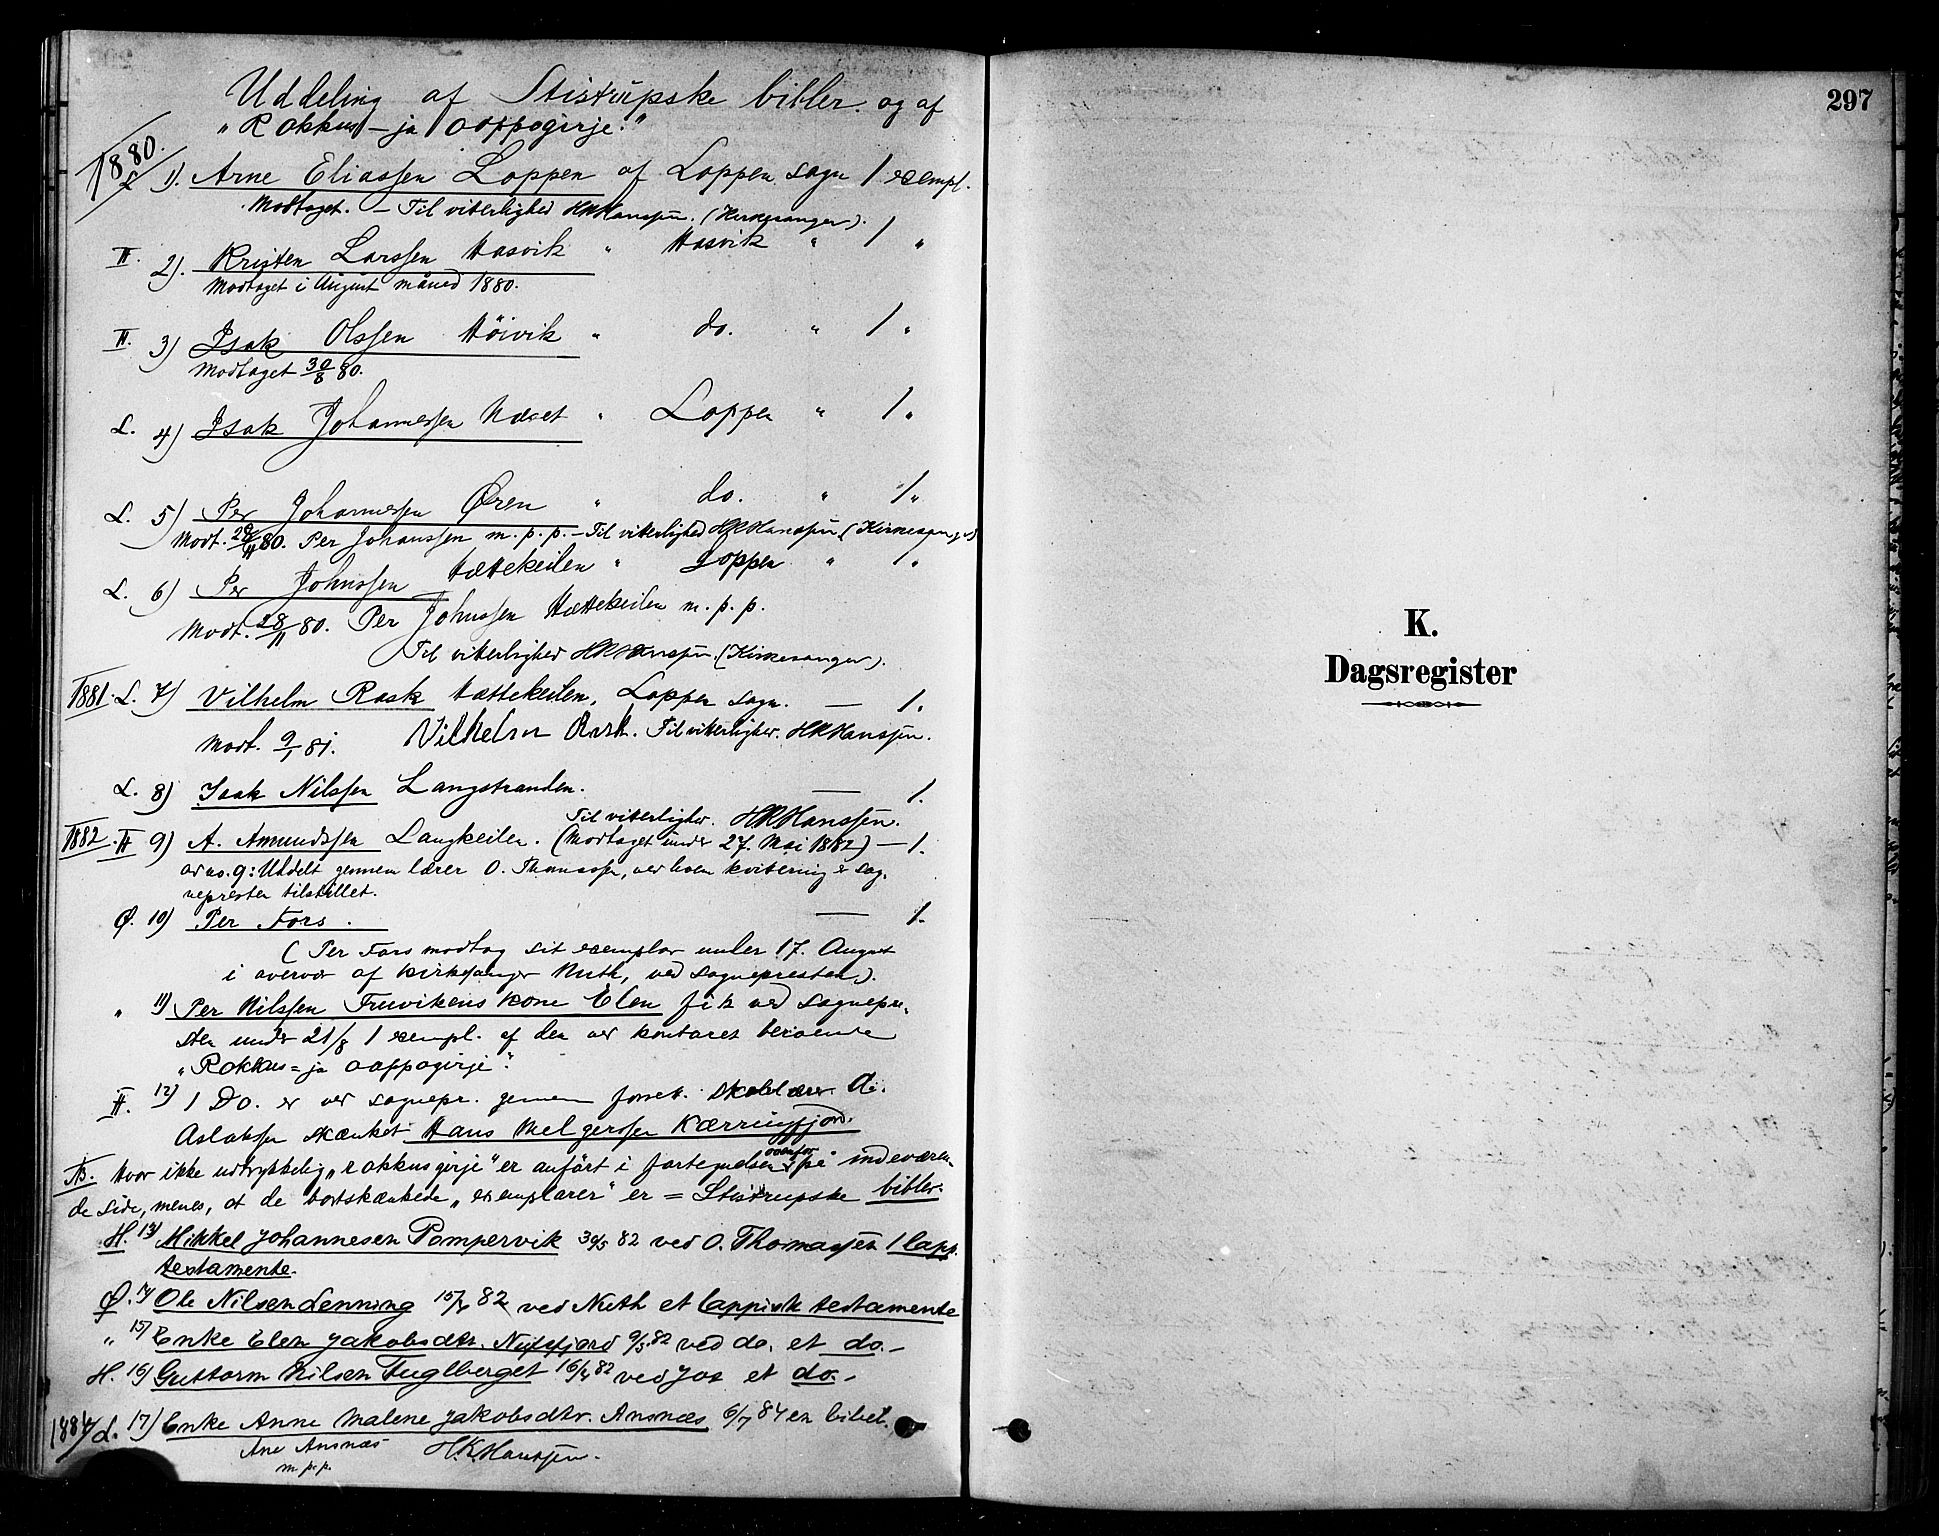 Uddeling af Stistrupske bibler og af
"Rokkus- ja oappogirje."
1880. L 1). Arne Eliassen Loppen af Loppen sogn 1 exempl.
Modtaget. - Til vitterlighed HKHanssen. (Kirkesanger).
H. 2). Kristen Larssen Hasvik " Hasvik " 1 "
Modtaget i August måned 1880.
H. 3) Isak Olssen Höivik " do. " 1 "
Modtaget 30/8 80.
L. 4) Isak Johannessen Næset " Loppen " 1 "
L. 5) Per Johannessen Øren " do. " 1 "
Modt. 28/11 80. Per Johanssen m. p. p. - Til vitterlighed HKHanssen (Kirkesanger)
L. 6) Per Johnssen Hættekeilen " Loppen " 1 "
Modt. 28/11 80. Per Johnssen Hættekeilen m. p. p.
Til vitterlighed HKHanssen. (Kirkesanger).
1881. L. 7) Vilhelm Rask Hættekeilen, Loppen sogn. — 1.
Modt. 9/1 81. Vilhelm Rask. Til vitterlighed. HKHanssen.
L. 8) Isak Nilssen Langstranden. — 1.
Til vitterlighed. HKHanssen.
1882. H 9) A. Amundssen Langkeilen. (Modtaget under 27. Mai 1882) — 1.
av no. 9: Uddelt gennem lærer O. Thomassen, kvitering er sog-
nepresten tilstillet.
Ø. 10) Per Fors. — 1.
(Per Fors modtog sit exemplar under 17. August
i overvær af kirkesanger Muth, ved sognepresten).
" 11) Per Nilssen Fruvikens kone Elen fik ved sognepre-
sten under 21/8 1 exempl. af den ved kontoret beroende
"Rokkus= ja oappogirje".
H. 12) 1 Do. er ved sognepr. gennem forret. skolelærer A.
Aslaksen skænket Hans Melgerssen Kærringfjord.
NB. Hvor ikke udtrykkelig "rokkusgirje" er anført i fortegnelsen ovenfor på indeværen-
de side, menes, at de bortskænkede "exemplarer" er = Stistrupske bibler.
H. 13) Mikkel Johannesen Pampervik 30/5 82 ved O. Thomassen 1 lapp.
testamente.
Ø. 14) Ole Nilsen Lenning 15/4 82 ved Muth et lappisk testamente
" 15) Enke Elen Jakobsdtr. Nuvsfjord 9/5 82 ved do. et do.-
H. 16) Guttorm Nilsen Fuglberget 16/4 82 ved Jos et do.-
1884 L. 17) Enke Anne Malene Jakobsdtr. Ansnæs 6/7 84 en bibel.
Ane Ansnæs H.K.Hanssen.
m. p. p.
297
K.
Dagsregister